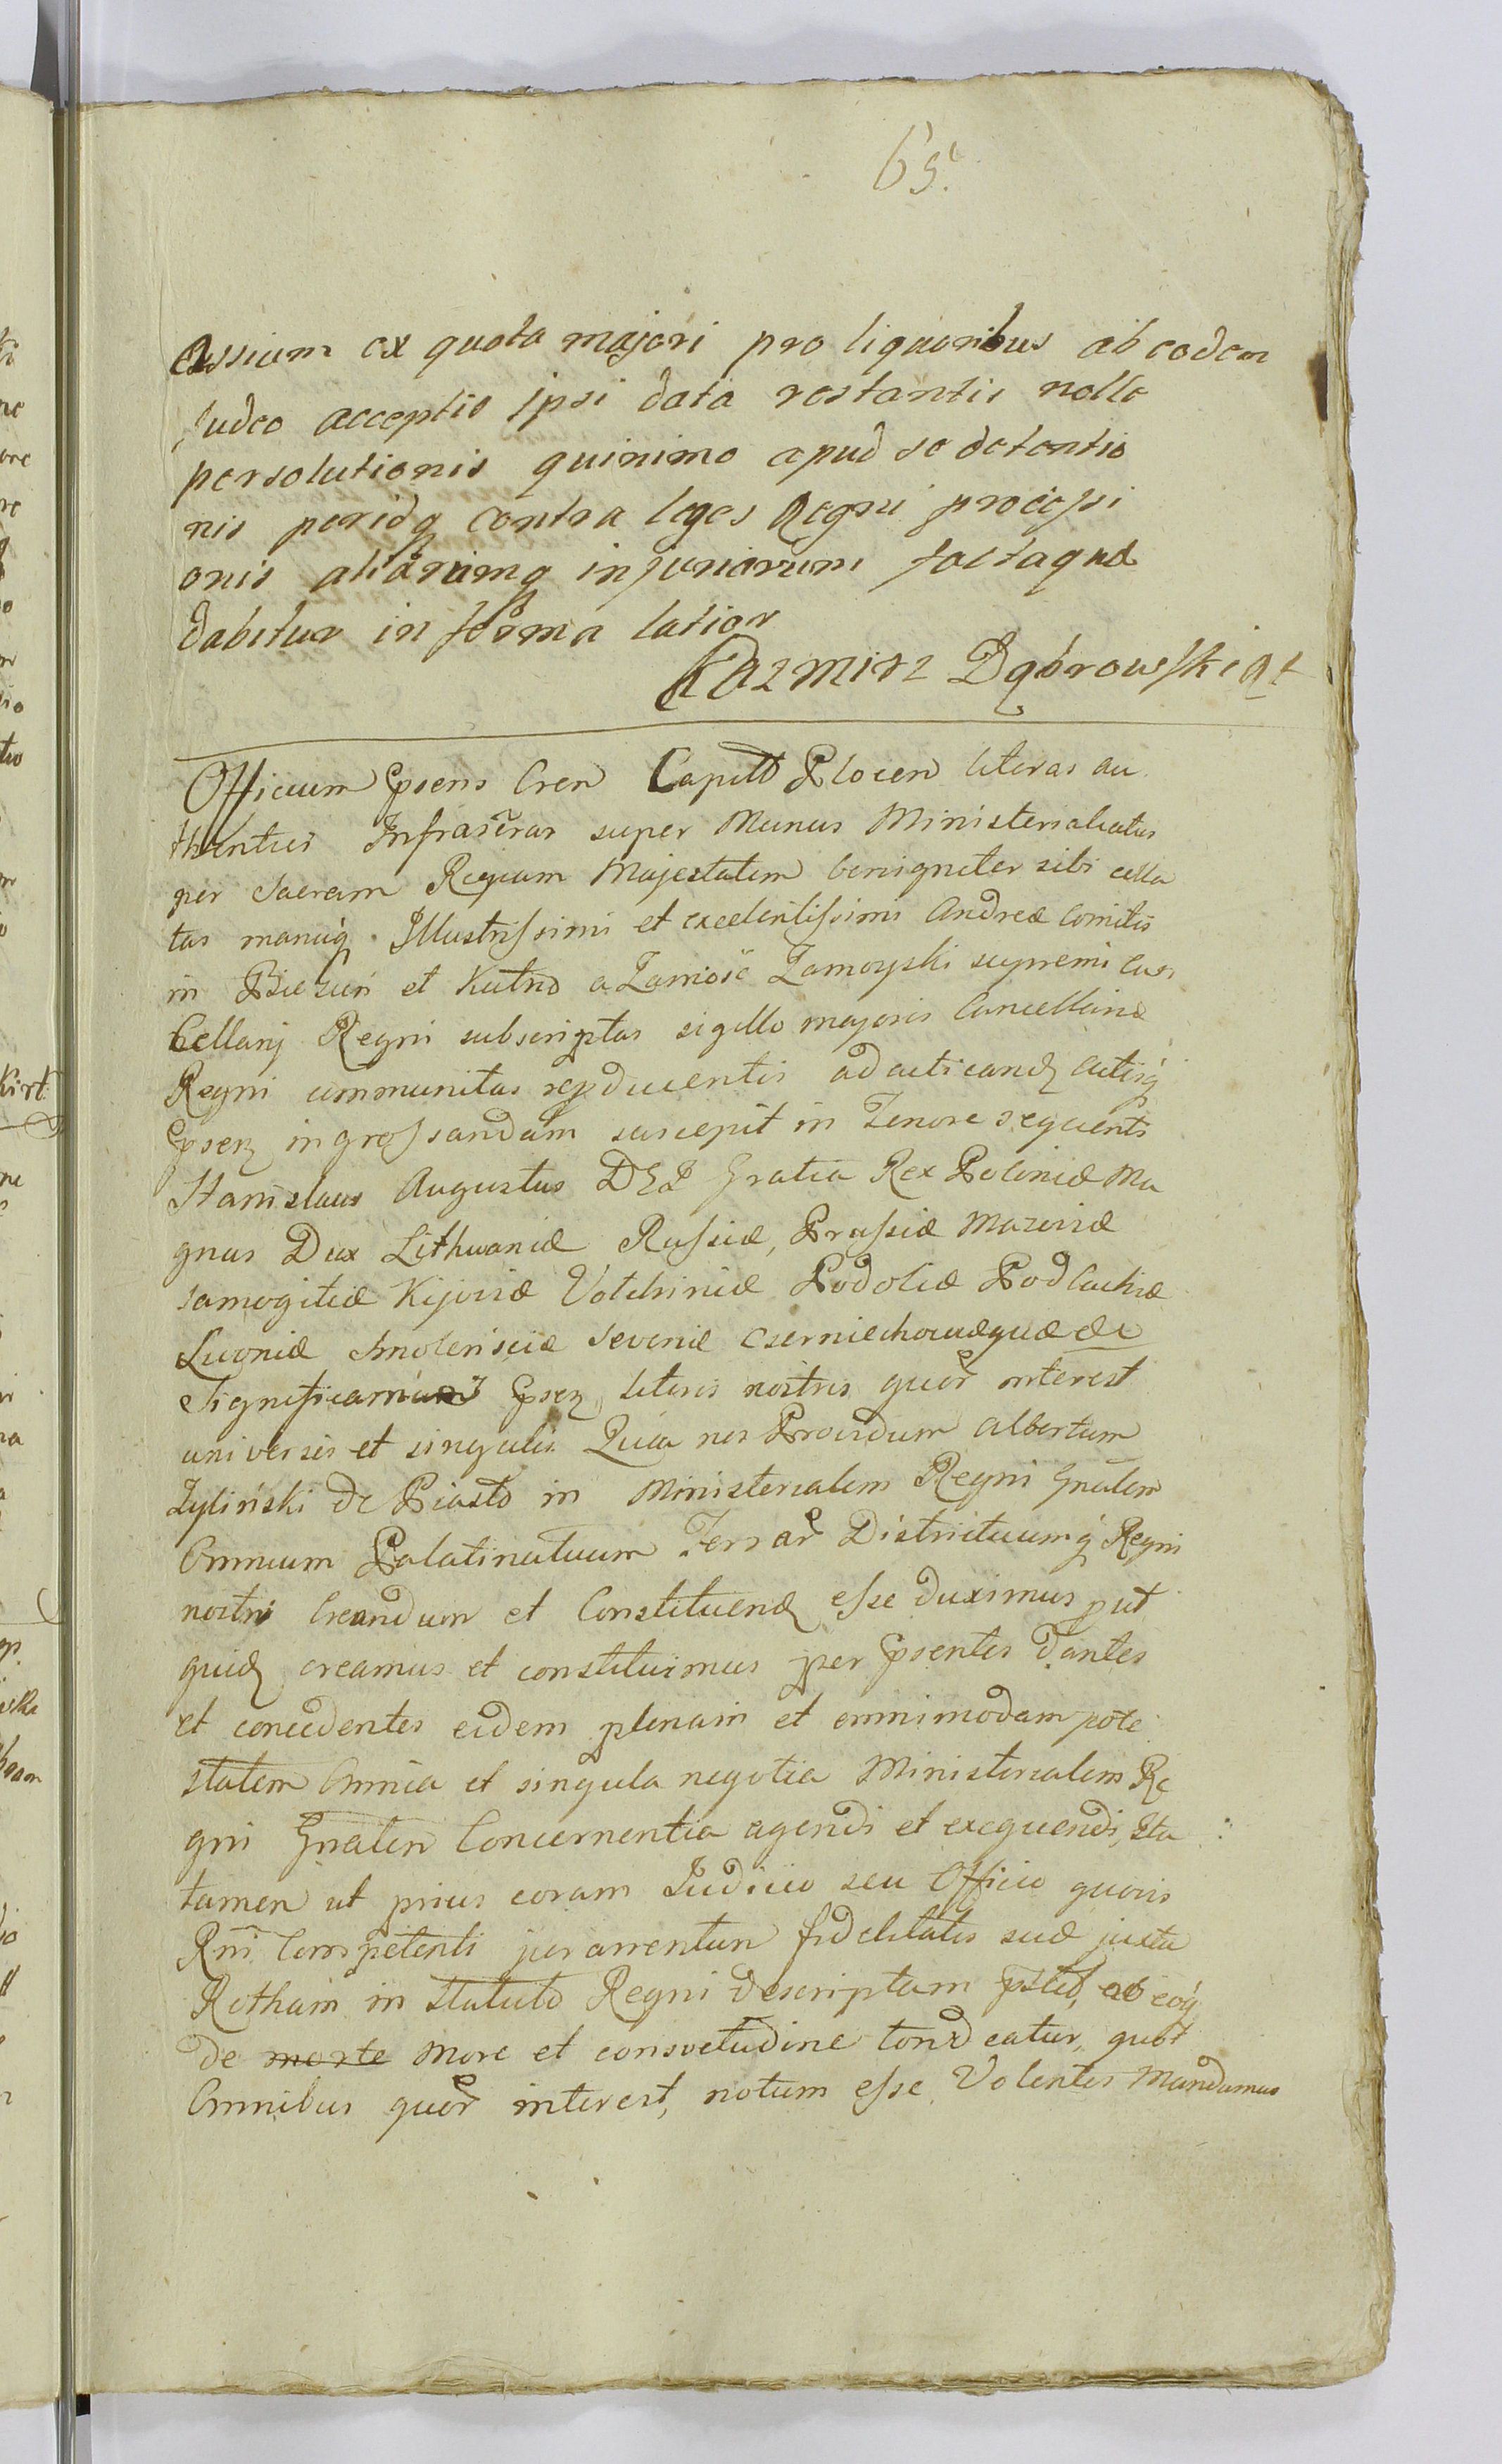 65.
assium ex quota majori pro liquoribus ab eodem
Judeo acceptis ipsi data restantis nolle
persolutionis quinimo apud se detentio
nis peridq contra leges Regni processi
onis aliarumq injuriarum factaque
dabitur in forma latior
Kazmirz Dąbrowski
Officium Ppsens Cren Capitt Plocen literas au
thenticas Infrascras super Munus Ministerialatus
per Sacram Regiam Majestatem benigniter sibi colla
tas manuq Illustrissimi et excelentissimi Andreæ Comitis
in Bieżuń et Kutno a Zamość Zamoyski supremi Can
cellarij Regni subscriptas sigillo majoris Cancellariæ
Regni communitas repducentis ad acticand actisq
Ppsen ingrossandam suscepit in Tenore sequenti
Stanislaus Augustus DEI Gratia Rex Poloniæ Ma
gnus Dux Lithuaniæ Russiæ, Prussiæ Mazoviæ
Samogitiæ Kijoviæ Volchiniæ Podoliæ Podlachiæ
Livoniæ Smolensciæ Severiæ Czerniechoviæquæ &c
Significamus Ppsen literis nostris quor interest
universis et singulis Quia nos Providum Albertum
Zyliński de Piasto in Ministerialem Regni Gnalem
Omnium Palatinatuum Terrar Districtuumq Regni
nostri Creandum et Constituend esse duximus put
quid creamus et constituimus per Ppsentes Dantes
et concedentes eidem plenam et omnimodam pote
statem Omnia et singula negotia Ministerialem Re
gni Gnalen Concernentia agendi et exequendi, Ita
tamen ut prius coram Judicio seu Officio quovis
Rni Competenti juramentum fidelitatis suæ juxta
Rotham in Statuto Regni descriptam pstet, ab eoq
de morte more et consvetudine tondeatur, quot
Omnibus quor interest, notum esse Volentes Mandamus